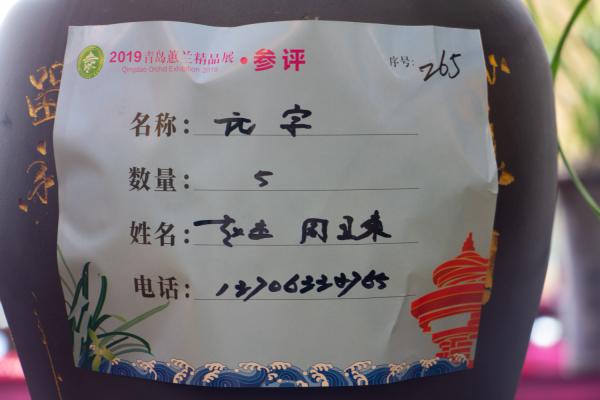 2019青岛蕙兰精品展·参评
Qingdao Orchid Exhibition 2019
序号: 265
名称: 元字
数量: 5
姓名: 周卫东
电话: